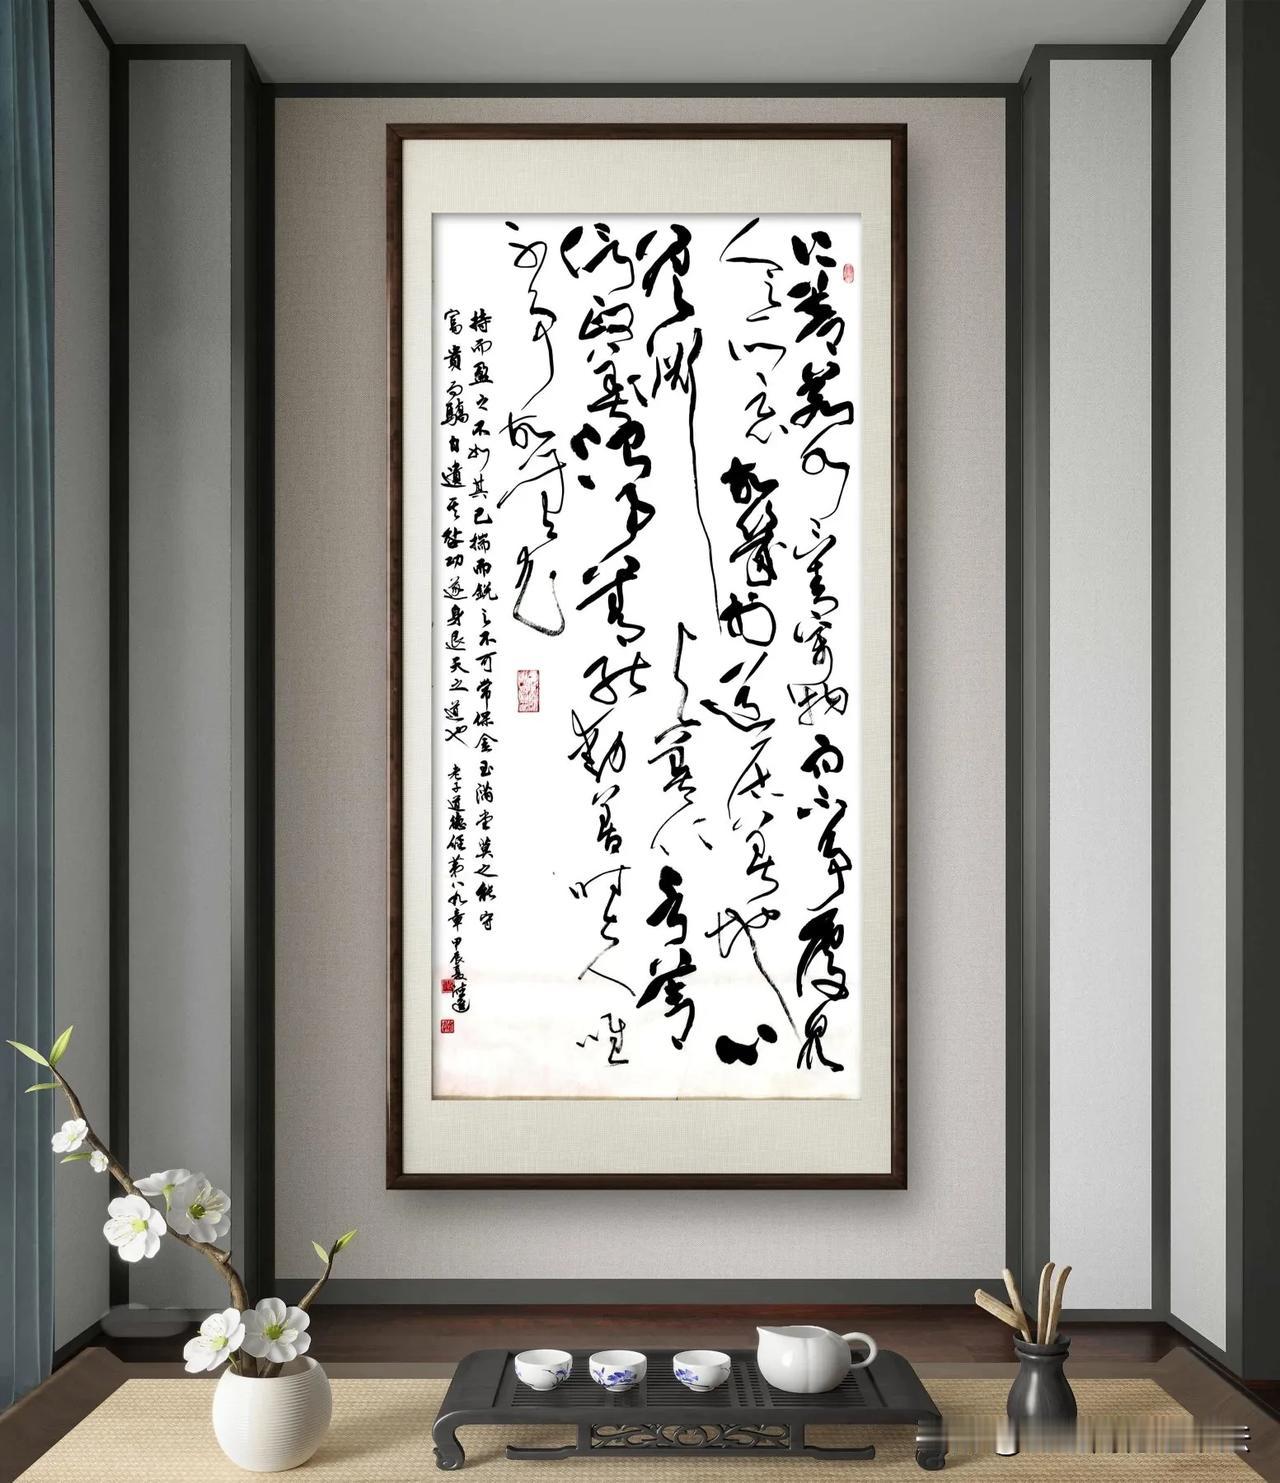 上善若水水善利萬物而不争處衆
人之所惡故幾於道居善地心
善淵與善仁言善
信政善治事善能動善時夫唯
不争故無尤
持而盈之不如其已揣而銳之不可常保金玉滿堂莫之能守
富貴而驕自遺其咎功遂身退天之道也 老子道德經第八九章 甲辰夏